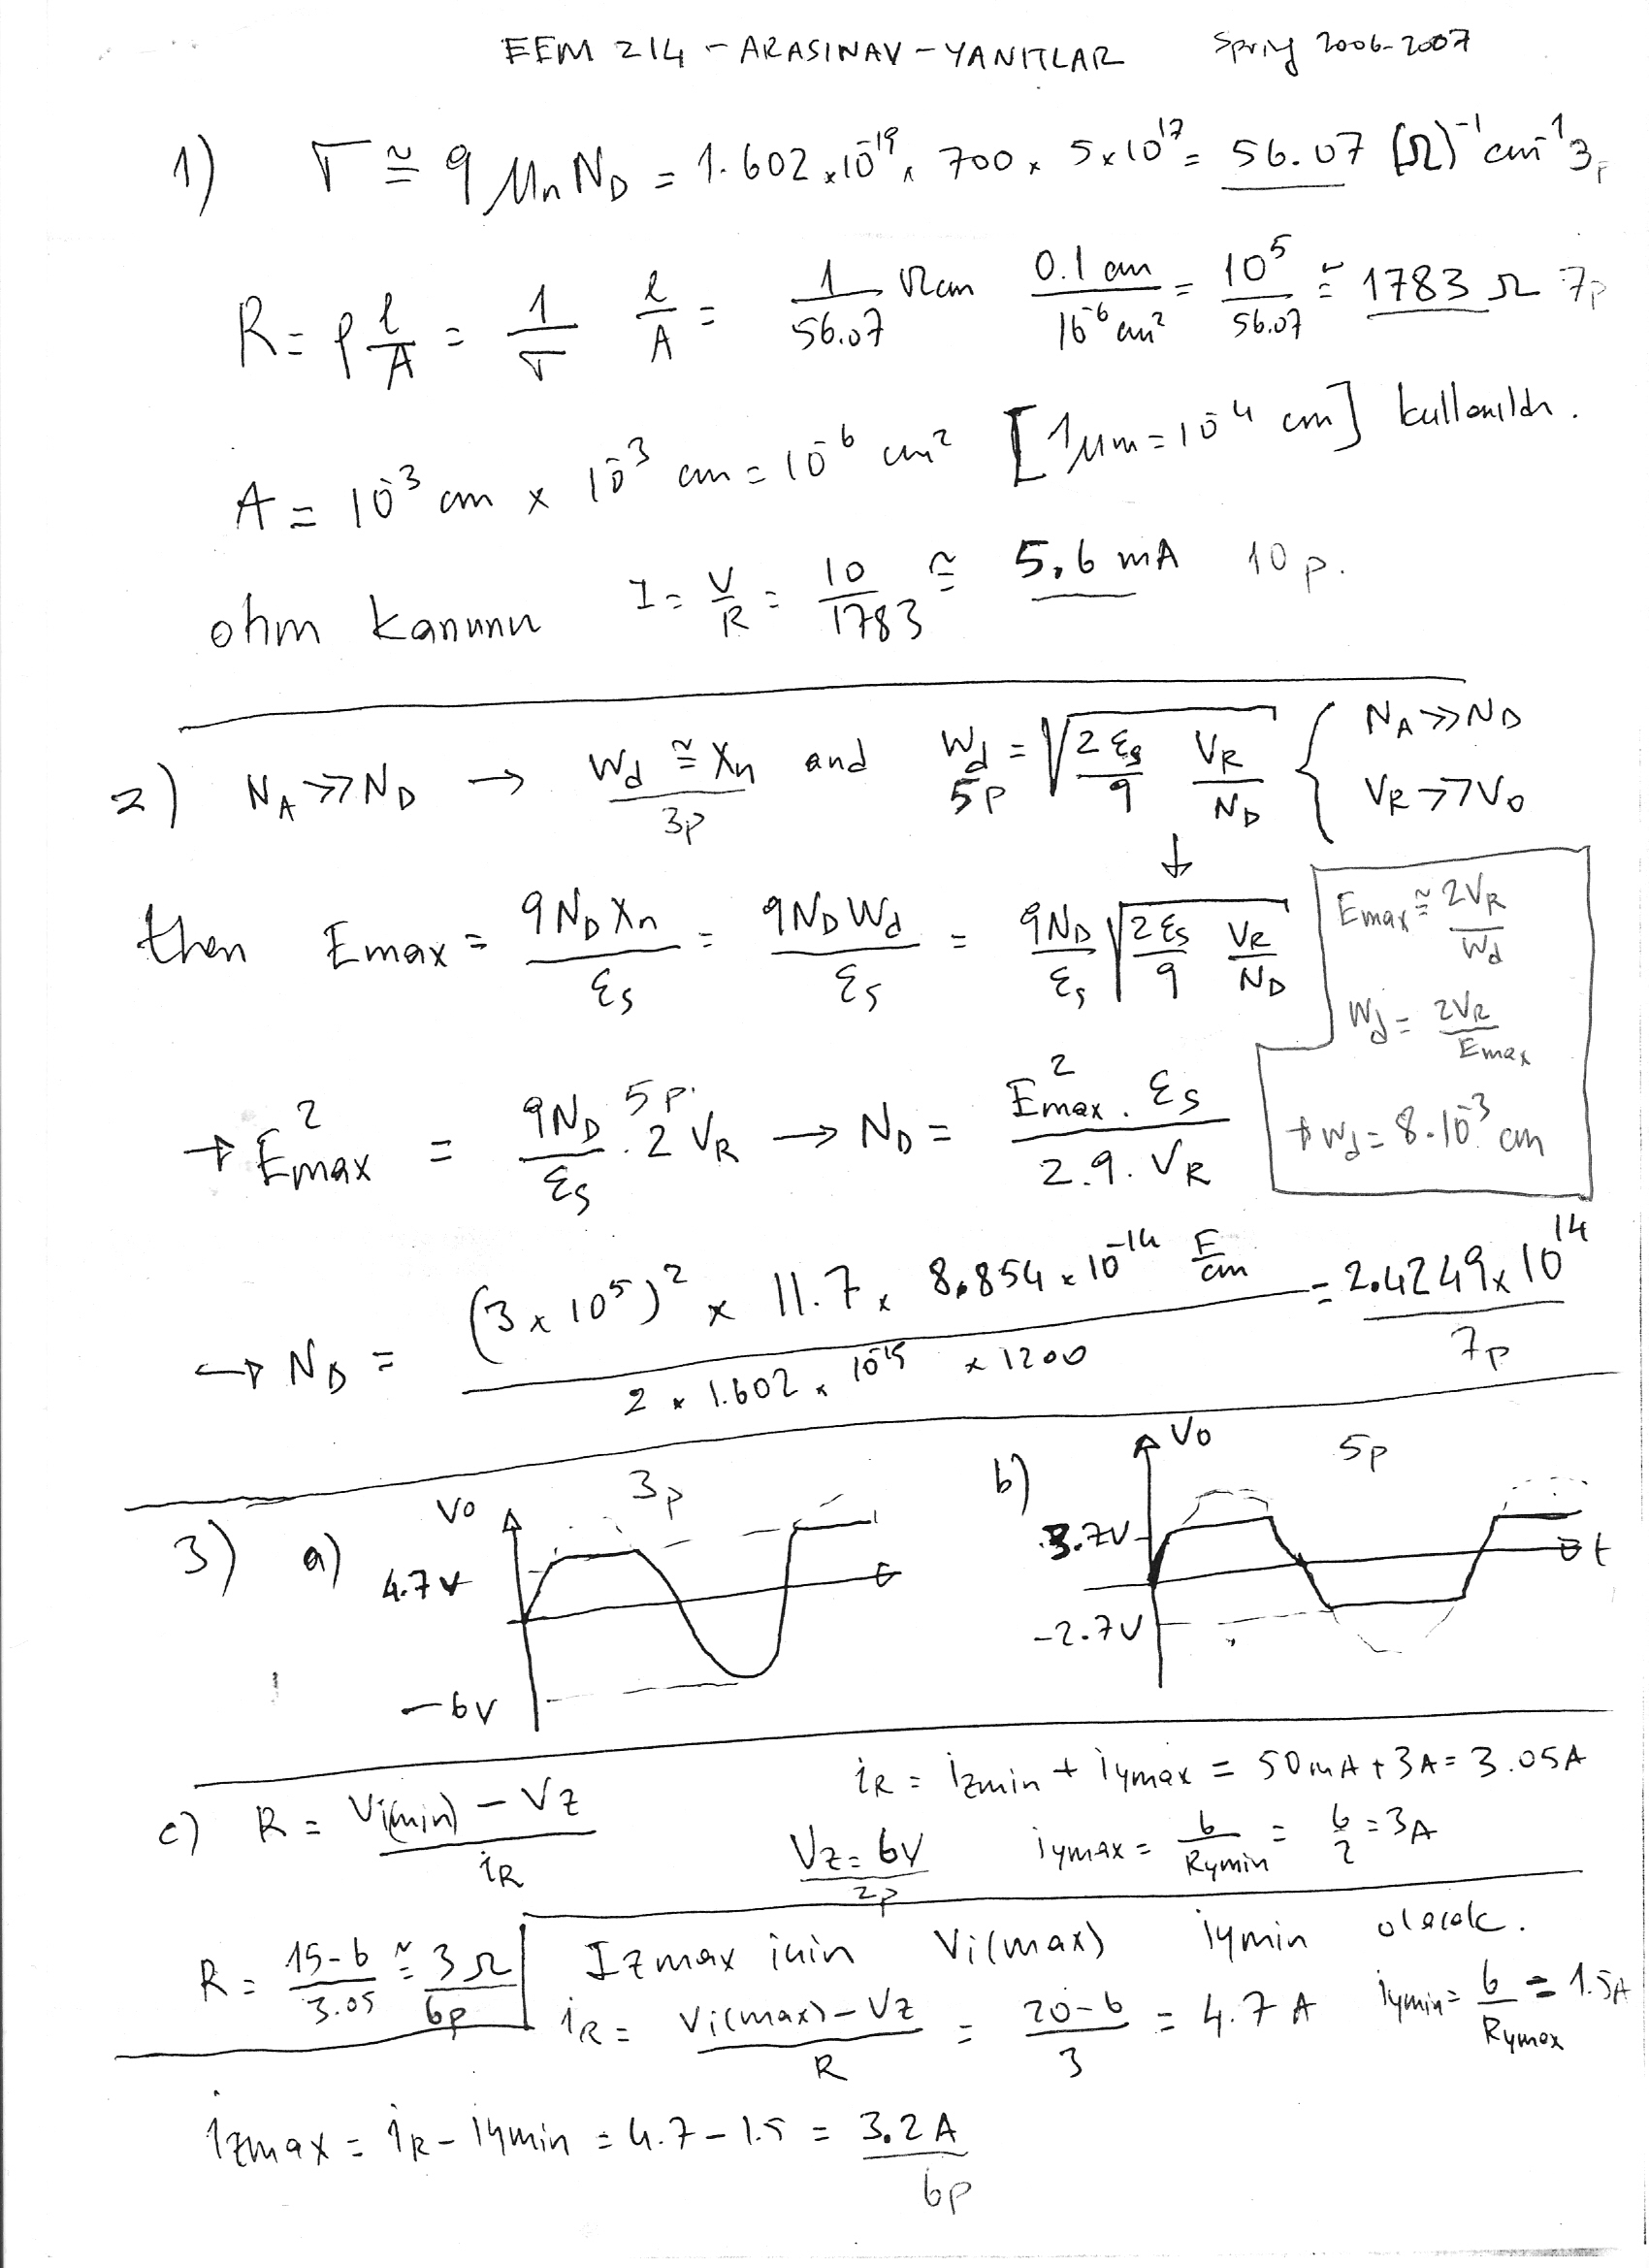 EEM 214 - ARASINAV - YANITLAR Spring 2006-2007
1) σ ≅ q μn ND = 1.602 x 10^-19 x 700 x 5x10^17 = 56.07 (Ω)^-1 cm^-1 3p
R = ρ l/A = 1/σ l/A = 1/56.07 Ωcm 0.1 cm/10^-6 cm² = 10^5/56.07 ≅ 1783 Ω 7p
A = 10^-3 cm x 10^-3 cm = 10^-6 cm² [1μm = 10^-4 cm] kullanıldı.
ohm kanunu I = V/R = 10/1783 ≅ 5,6 mA 10 p.
2) NA >> ND → Wd ≅ Xn 3p and Wd = √(2 εs/q VR/ND) 5p { NA >> ND
VR >> Vo
↓
then Emax = q ND Xn/εs = q ND Wd/εs = q ND/εs √(2 εs/q VR/ND)
Emax ≅ 2VR/Wd
Wd = 2VR/Emax
→ Wd = 8.10^-3 cm
→ Emax² = q ND/εs . 2 VR 5p. → ND = Emax² . εs/2.q.VR
→ ND = (3 x 10^5)² x 11.7 x 8.854 x 10^-14 F/cm / 2 x 1.602 x 10^-19 x 1200 = 2.4249 x 10^14 7p
3) a) Vo 3p
4.7 V
t
-6V
b) Vo 5p
3.7V
t
-2.7V
c) R = Vi(min) - VZ/iR
iR = iZmin + iymax = 50 mA + 3A = 3.05A
VZ = 6V 2p iymax = 6/Rymin = 6/2 = 3A
R = 15-6/3.05 ≅ 3 Ω 6p
IZmax için Vi(max) iymin olacak.
iR = Vi(max) - VZ/R = 20-6/3 = 4.7 A iymin = 6/Rymax = 1.5A
iZmax = iR - iymin = 4.7 - 1.5 = 3.2 A
6p